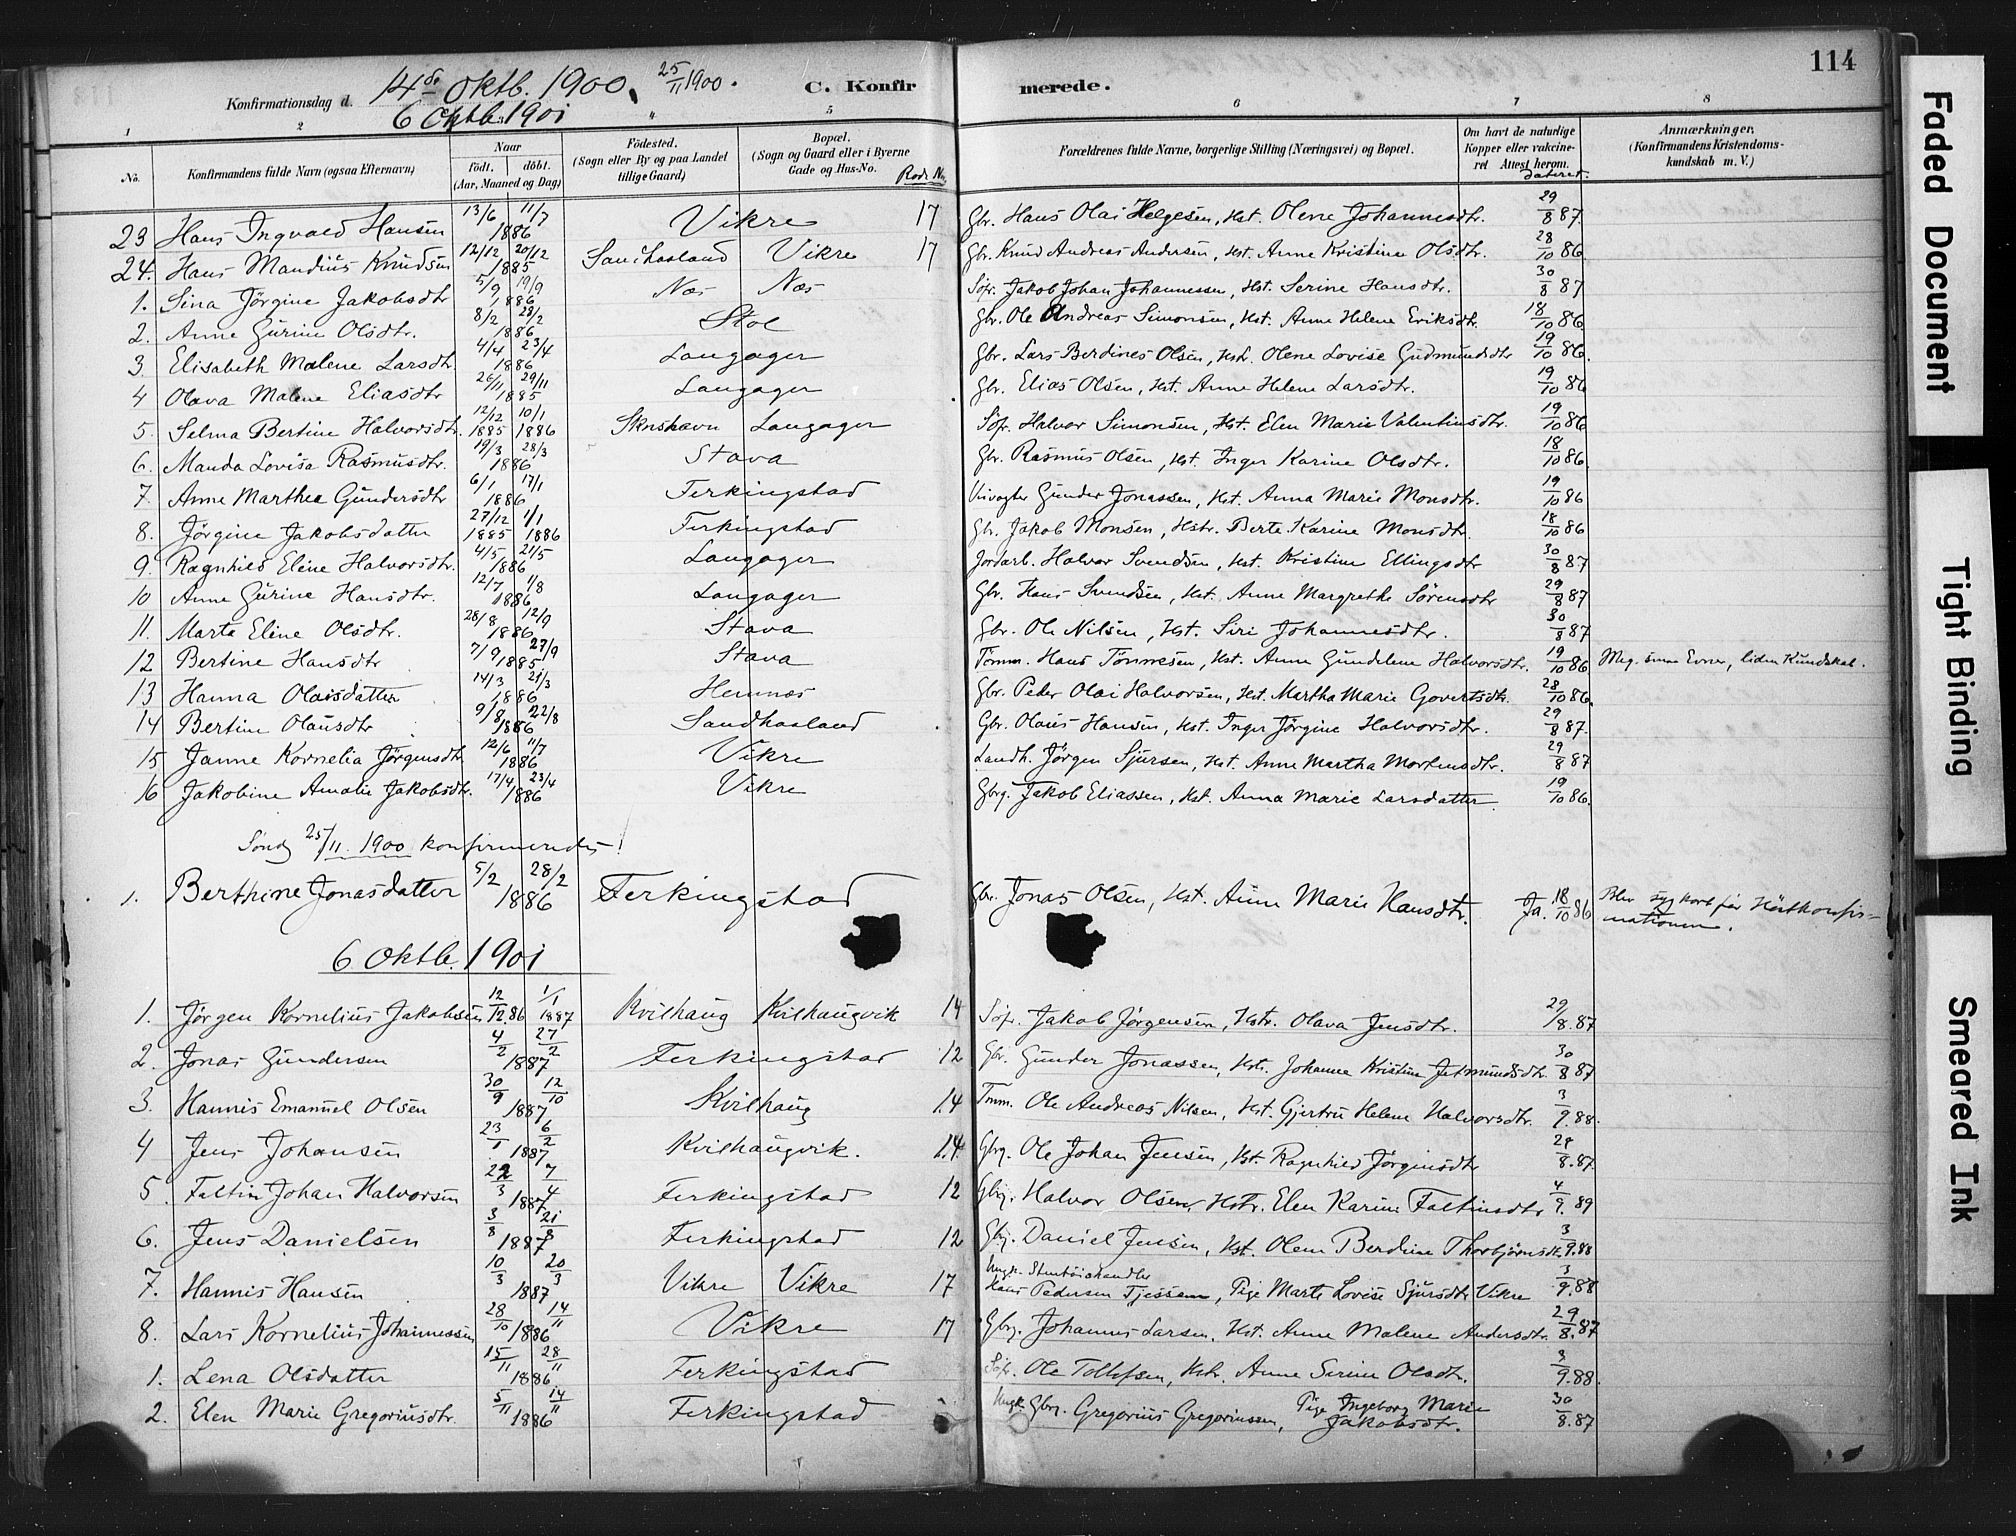 114
Konfirmationsdag d. 14de Oktb. 1900, 25/11 1900.
6 Oktb. 1901
C. Konfirmerede.
1 2 3 4 5 6 7 8
No. Konfirmandens fulde Navn (ogsaa Efternavn) Naar Født. døbt. (Aar, Maaned og Dag) Fødested. (Sogn eller By og paa Landet tillige Gaard) Bopæl. (Sogn og Gaard eller i Byerne Gade og Hus-No. Rode No. Forældrenes fulde Navne, borgerlige Stilling (Næringsvei) og Bopæl. Om havt de naturlige Kopper eller vaccineret Attest herom. dateret. Anmærkninger. (Konfirmandens Kristendomskundskab m. V.)
23 Hans Ingvald Hansen 13/6 11/7 1886 Vikre 17 Gbr. Hans Olai Helgesen, Hst. Olene Johannesdtr. 29/8 87
24. Hans Mandius Knudsen 12/12 20/12 1885 Sandhasland Vikre 17 Gbr. Knud Andreas Andersen, Hst. Anne Kristine Olsdtr. 28/10 86
1. Sina Jörgine Jakobsdtr 5/9 19/9 1886 Næs Næs Söfr. Jakob Johan Johannessen, Hst. Serine Hansdtr. 30/8 87
2. Anne Gurine Olsdtr. 8/2 28/2 1886 Stol Gbr. Ole Andreas Simonsen, Hst. Anne Helene Eriksdtr. 18/10 86
3 Elisabeth Malene Larsdtr 4/4 23/4 1886 Langager Gbr. Lars Berdines Olsen, Hst. Olene Lovise Gudmundsdtr 19/10 86.
4 Olava Malene Eliasdtr 26/11 29/11 1885 Langager Gbr. Elias Olsen, Hst. Anne Helene Larsdtr. 19/10 86
5. Selma Bertine Halvorsdtr. 12/12 1885 10/1 1886 Sknshavn Langager Söfr. Halvor Simonsen, Hst. Elen Marie Valentinsdtr. 19/10 86
6. Manda Lovisa Rasmusdtr. 19/3 28/3 1886 Stava Gbr. Rasmus Olsen, Hst. Inger Karine Olsdtr. 18/10 86.
7. Anne Marthea Gundersdtr 6/1 17/1 1886 Ferkingstad Gunder Jonassen, Hst. Anna Marie Monsdtr. 19/10 86
8. Jörgine Jakobsdatter 27/12 1885 1/1 1886 Ferkingstad Gbr. Jakob Monsen, Hstr. Berte Karine Monsdtr. 18/10 86
9. Ragnhild Eline Halvorsdtr. 4/5 21/5 1886 Langager Jordarb. Halvor Svendsen, Hst. Kristine Ellingsdtr 30/8 87
10 Anne Gurine Hansdtr. 12/7 1/8 1886 Langager Gbr. Hans Svendsen, Hst. Anne Margrethe Sörensdtr 29/8 87
11. Marta Eline Olsdtr. 28/8 12/9 1886 Stava Gbr. Ole Nilsen, Hst. Siri Johannesdtr. 30/8 87
12 Bertine Hansdtr 7/9 27/9 1885 Stava Tömm. Hans Tönnesen, Hst. Anne Gundelene Halvorsdtr. 19/10 86 Meg. smaa Evner, liden Kundskab.
13 Hanna Olaisdatter 14/3 21/3 1886 Hemnes Gbr. Peder Olai Halvorsen, Hst. Martha Marie Govertsdtr. 28/10 86.
14 Bertine Olausdtr 9/8 22/8 1886 Sandhasland Gbr. Olaus Hansen, Hst. Inger Jörgine Halvorsdtr. 29/8 87.
15 Janne Kornelia Jörgensdtr 12/6 11/7 1886 Vikre Landh. Jörgen Sjursen, Hst. Anne Martha Mortensdtr. 29/8 87
16 Jakobine Amalie Jakobsdtr. 17/4 23/4 1886 Vikre Gbrg. Jakob Eliassen, Hst. Anna Marie Larsdatter 19/10 86.
Sönd 25/11 1900 konfirmeredes!
1. Berthine Jonasdatter 5/2 28/2 1886 Ferkingstad Gbr. Jonas Olsen, Hst. Anne Marie Hansdtr. Ja. 18/10 86 Blev syg kort för Höstkonfirmationen.
6. Oktb. 1901
1. Jörgen Kornelius Jakobsen 12/12.86 1/1 1887 Kvilhaug Kvilhaugvik 14 Söfr. Jakob Jörgensen, Hstr. Olava Jensdtr. 29/8.87
2. Jonas Gundersen 4/2 27/2 1887 Ferkingstad 12 Gbr. Gunder Jonassen, Hstr. Johanne Kristine Jetmundsdtr. 30/8 87
3. Hannis Emanuel Olsen 30/9 12/10 1887 Kvilhaug 14 Tmm. Ole Andreas Nilsen, Hst. Gjertru Helene Halvorsdtr. 3/9.88.
4 Jens Johansen 23/1 6/2 1887 Kvilhaugvik. 14 Gbrg. Ole Johan Jensen, Hst. Ragnhild Jörginsdtr 29/8.87
5. Faltin Johan Halvorsen 22/3 7/4 1887 Ferkingstad 12 Gbrg. Halvor Olsen, Hstr. Elen Karine Faltinsdtr 4/9.89
6. Jens Danielsen 3/8 21/8 1887 Ferkingstad 12 Gbrg. Daniel Jensen, Hst. Olene Berdine Thorbjörnsdtr. 3/9.88
7. Hannis Hansen 10/3 20/3 1887 Vikre Vikre 17 Ungk. Stentöishandler Hans Pedersen Tjessem, Pige Marte Lovise Sjursdtr Vikre 3/9.88
8. Lars Kornelius Johannessen 28/10 14/11 1886 Vikre 17 Gbrg. Johannes Larsen, Hst. Anne Malene Andersdtr. 29/8.87
1. Lena Olsdatter 15/11 28/11 1886 Ferkingstad Söfr. Ole Tollefsen, Hstr. Anne Serine Olsdtr. 3/9.88.
2. Elen Marie Gregoriusdtr. 5/11 14/11 1886 Ferkingstad Ungk. Gbrg. Gregorius Gregoriussen, Pige Ingeborg Marie Jakobsdtr. 30/8.87
Faded Document
Tight Binding
Smeared Ink